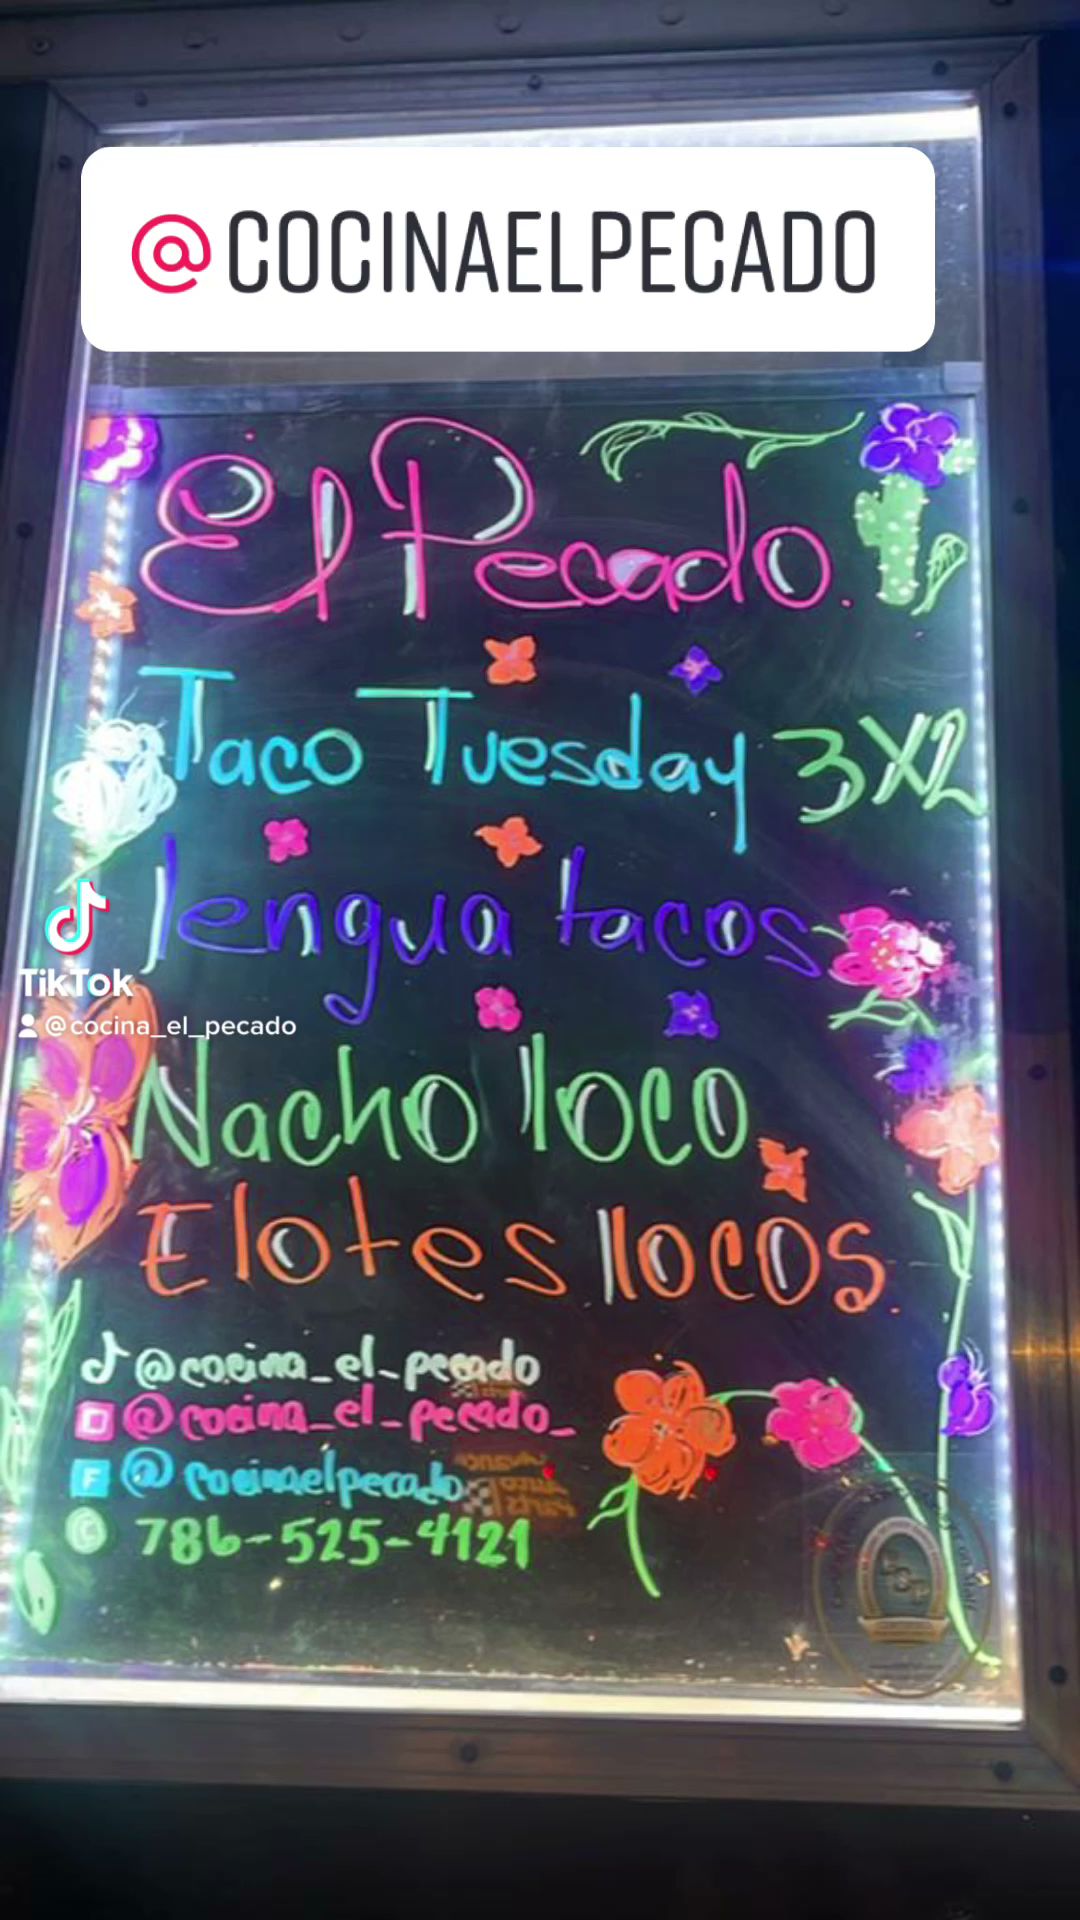 @COCINAELPECADO
El Pecado.
Taco Tuesday 3X2
lengua tacos
Nacho loco
Elotes locos.
TikTok
@cocina_el_pecado
@cocina_el_pecado
@cocina_el_pecado_
F @cocinaelpecado
786-525-4121